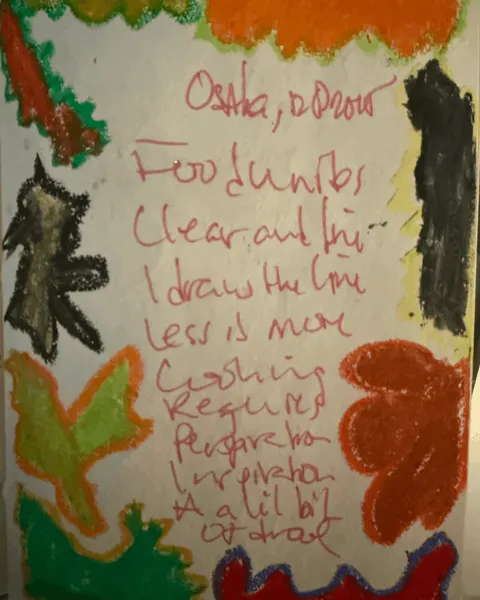 Osaka,
Food unites
Clear and
I draw the line
less is more
Cooking
Requires
Perspiration
Inspiration
& a lil bit
Of